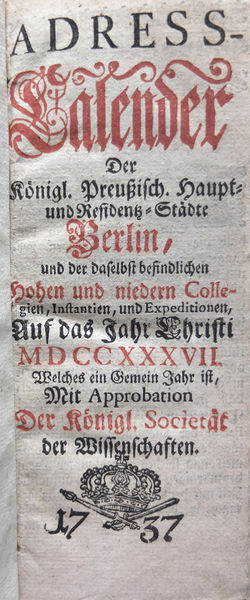 ADRESS-
Calender
Der
Königl. Preußisch. Haupt-
und Residentz-Städte
Berlin,
und der daselbst befindlichen
Hohen und niedern Colle-
gien, Instantien, und Expeditionen,
Auf das Jahr Christi
MDCCXXXVII.
Welches ein Gemein Jahr ist,
Mit Approbation
Der Königl. Societät
der Wissenschaften.
1737